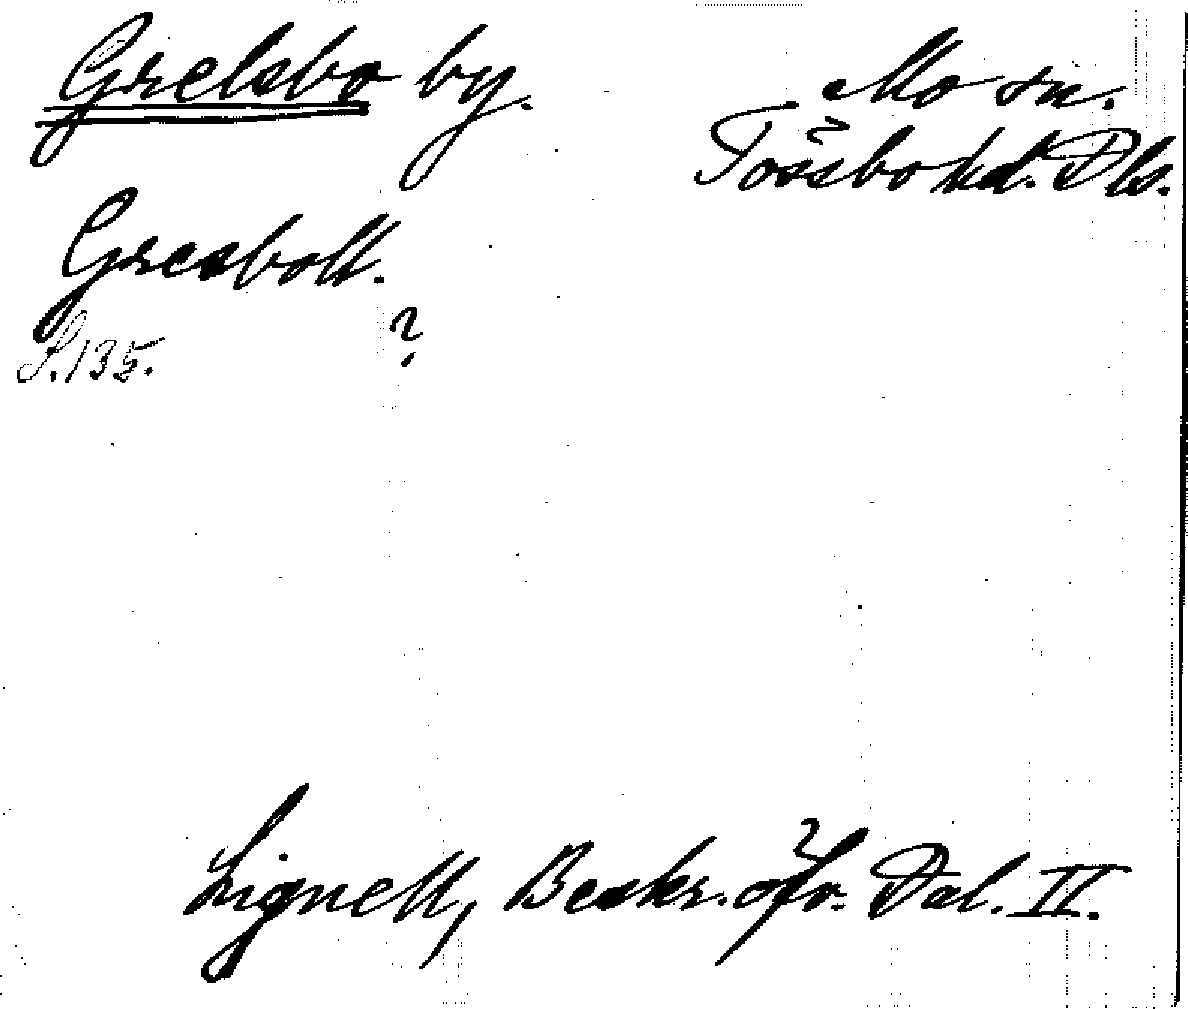 Grelsbo by.
Mo sn.
Tössbo hd. Dls.
Gresboll.
S. 135.
?
Lignell, Beskr. öfv. Dal. II.